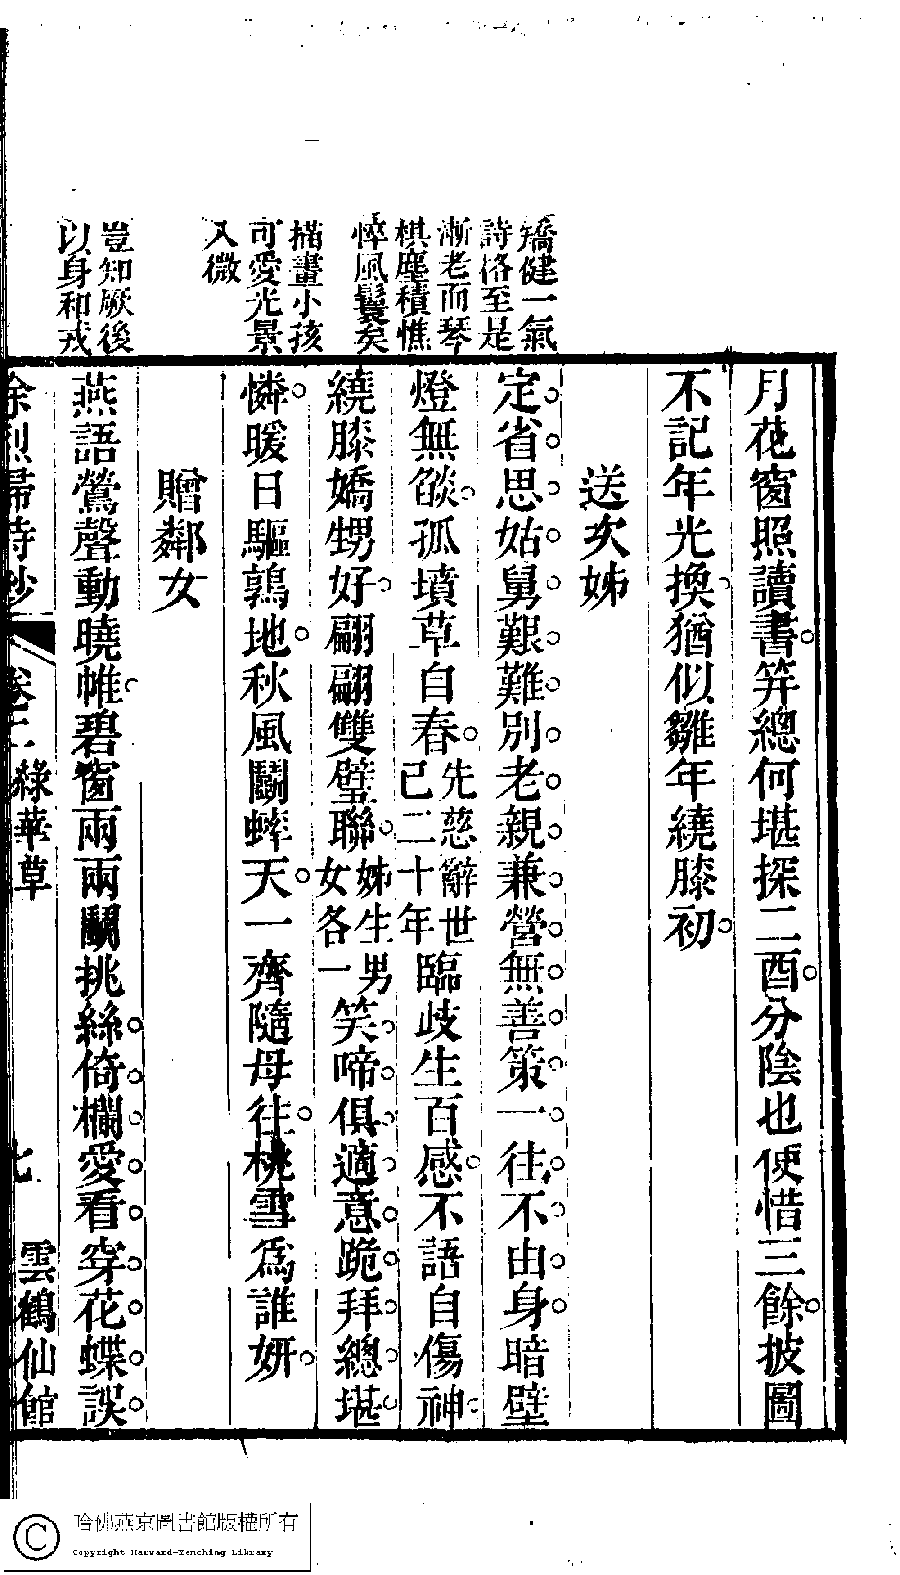 矯健一氣
詩格至是
漸老而琴
棋塵積憔
悴風鬟矣
描畫小孩
可愛光景
入微
豈知厥後
以身和戎
月花窗照讀書筭總何堪探二酉分陰也使惜三餘披圖
不記年光換猶似雛年繞膝初
送次姊
定省思姑舅艱難別老親兼營無善策一往不由身暗壁
燈無燄孤墳草自春先慈辭世已二十年臨歧生百感不語自傷神
繞膝嬌甥好翩翩雙璧聯姊生男女各一笑啼俱適意跪拜總堪
憐暖日驅鶉地秋風鬭蟀天一齊隨母往桃雪爲誰妍
贈鄰女
燕語鶯聲動曉帷碧窗兩兩鬬挑絲倚欄愛看穿花蝶誤
余烈婦詩鈔 卷三 綠華草 七 雲鶴仙館
哈佛燕京圖書館版權所有
Copyright Harvard-Yenching Library